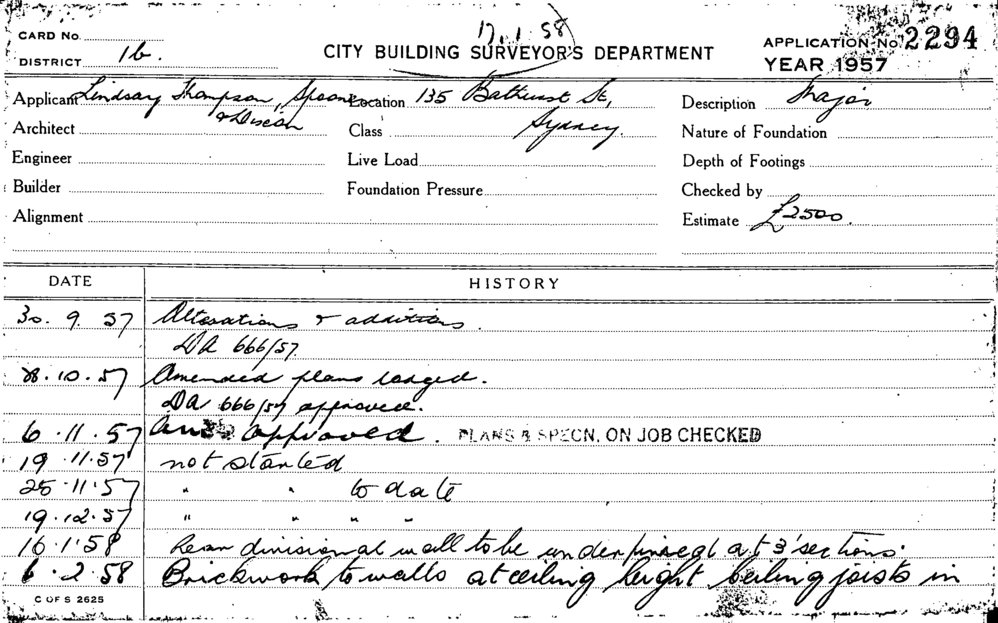 17.1.58
CARD No.
DISTRICT 1b.
CITY BUILDING SURVEYOR'S DEPARTMENT
APPLICATION No. 2294
YEAR 1957
Applicant Lindsay Thompson, Spooner
& Dixon
Location 135 Bathurst St,
Sydney.
Description Major
Architect
Class
Nature of Foundation
Engineer
Live Load
Depth of Footings
Builder
Foundation Pressure
Checked by
Alignment
Estimate £2500.
DATE HISTORY
30. 9. 57 Alterations & additions.
DA 666/57.
28.10.57 Amended plans lodged.
DA 666/57 approved.
6.11.57 approved. PLANS & SPECN. ON JOB CHECKED
19.11.57 not started
25.11.57 " " to date
19.12.57 " " " "
16.1.58 Rear divisional wall to be underpinned at 3' sections.
6.2.58 Brickwork to walls at ceiling height ceiling joists in
C OF S 2625